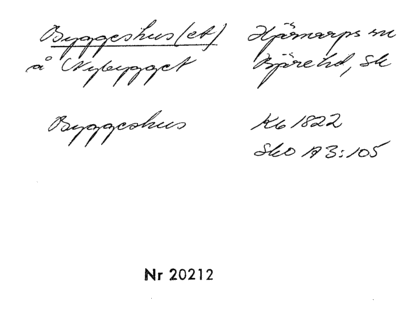 Byggeshus(et) Hjärnarps sn
å Nybygget Bjäre hd, Sk
Byggeshus Kb 1822
SkO A3:105
Nr 20212